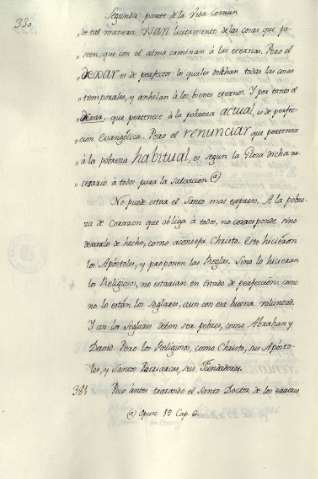 330
Segunda parte de la Vida Comun
de tal manera usan licitamente de las cosas que po-
seen, que con el alma caminan à las eternas. Pero el
dexar es de perfectos, los quales olvidan todas las cosas
temporales, y anhelan à los bienes eternos. Y por tanto el
dexar, que pertenece à la pobreza actual, es de perfec-
cion Evangelica. Pero el renunciar que pertenece
à la pobreza habitual, es segun la Glosa dicha ne-
cesario à todos para la salvacion @
No puede estar el Santo mas expreso. A la pobre-
za de Corazon que obliga à todos, no corresponde sino
dexarlo de hecho, como aconseja Christo. Esto hicieron
los Apóstoles, y proponen las Reglas. Sino lo hicieran
los Religiosos, no estarian en estado de perfección, como
no lo están los seglares, aun con esa buena voluntad.
Y an los seglares deben ser pobres, como Abrahan y
David. Pero los Religiosos, como Christo, sus Apósto-
les, y Santos Patriarcas, sus Fundadores.
384 Poco antes tratando el Santo Doctor de los
@ Opusc. 19 Cap 6.